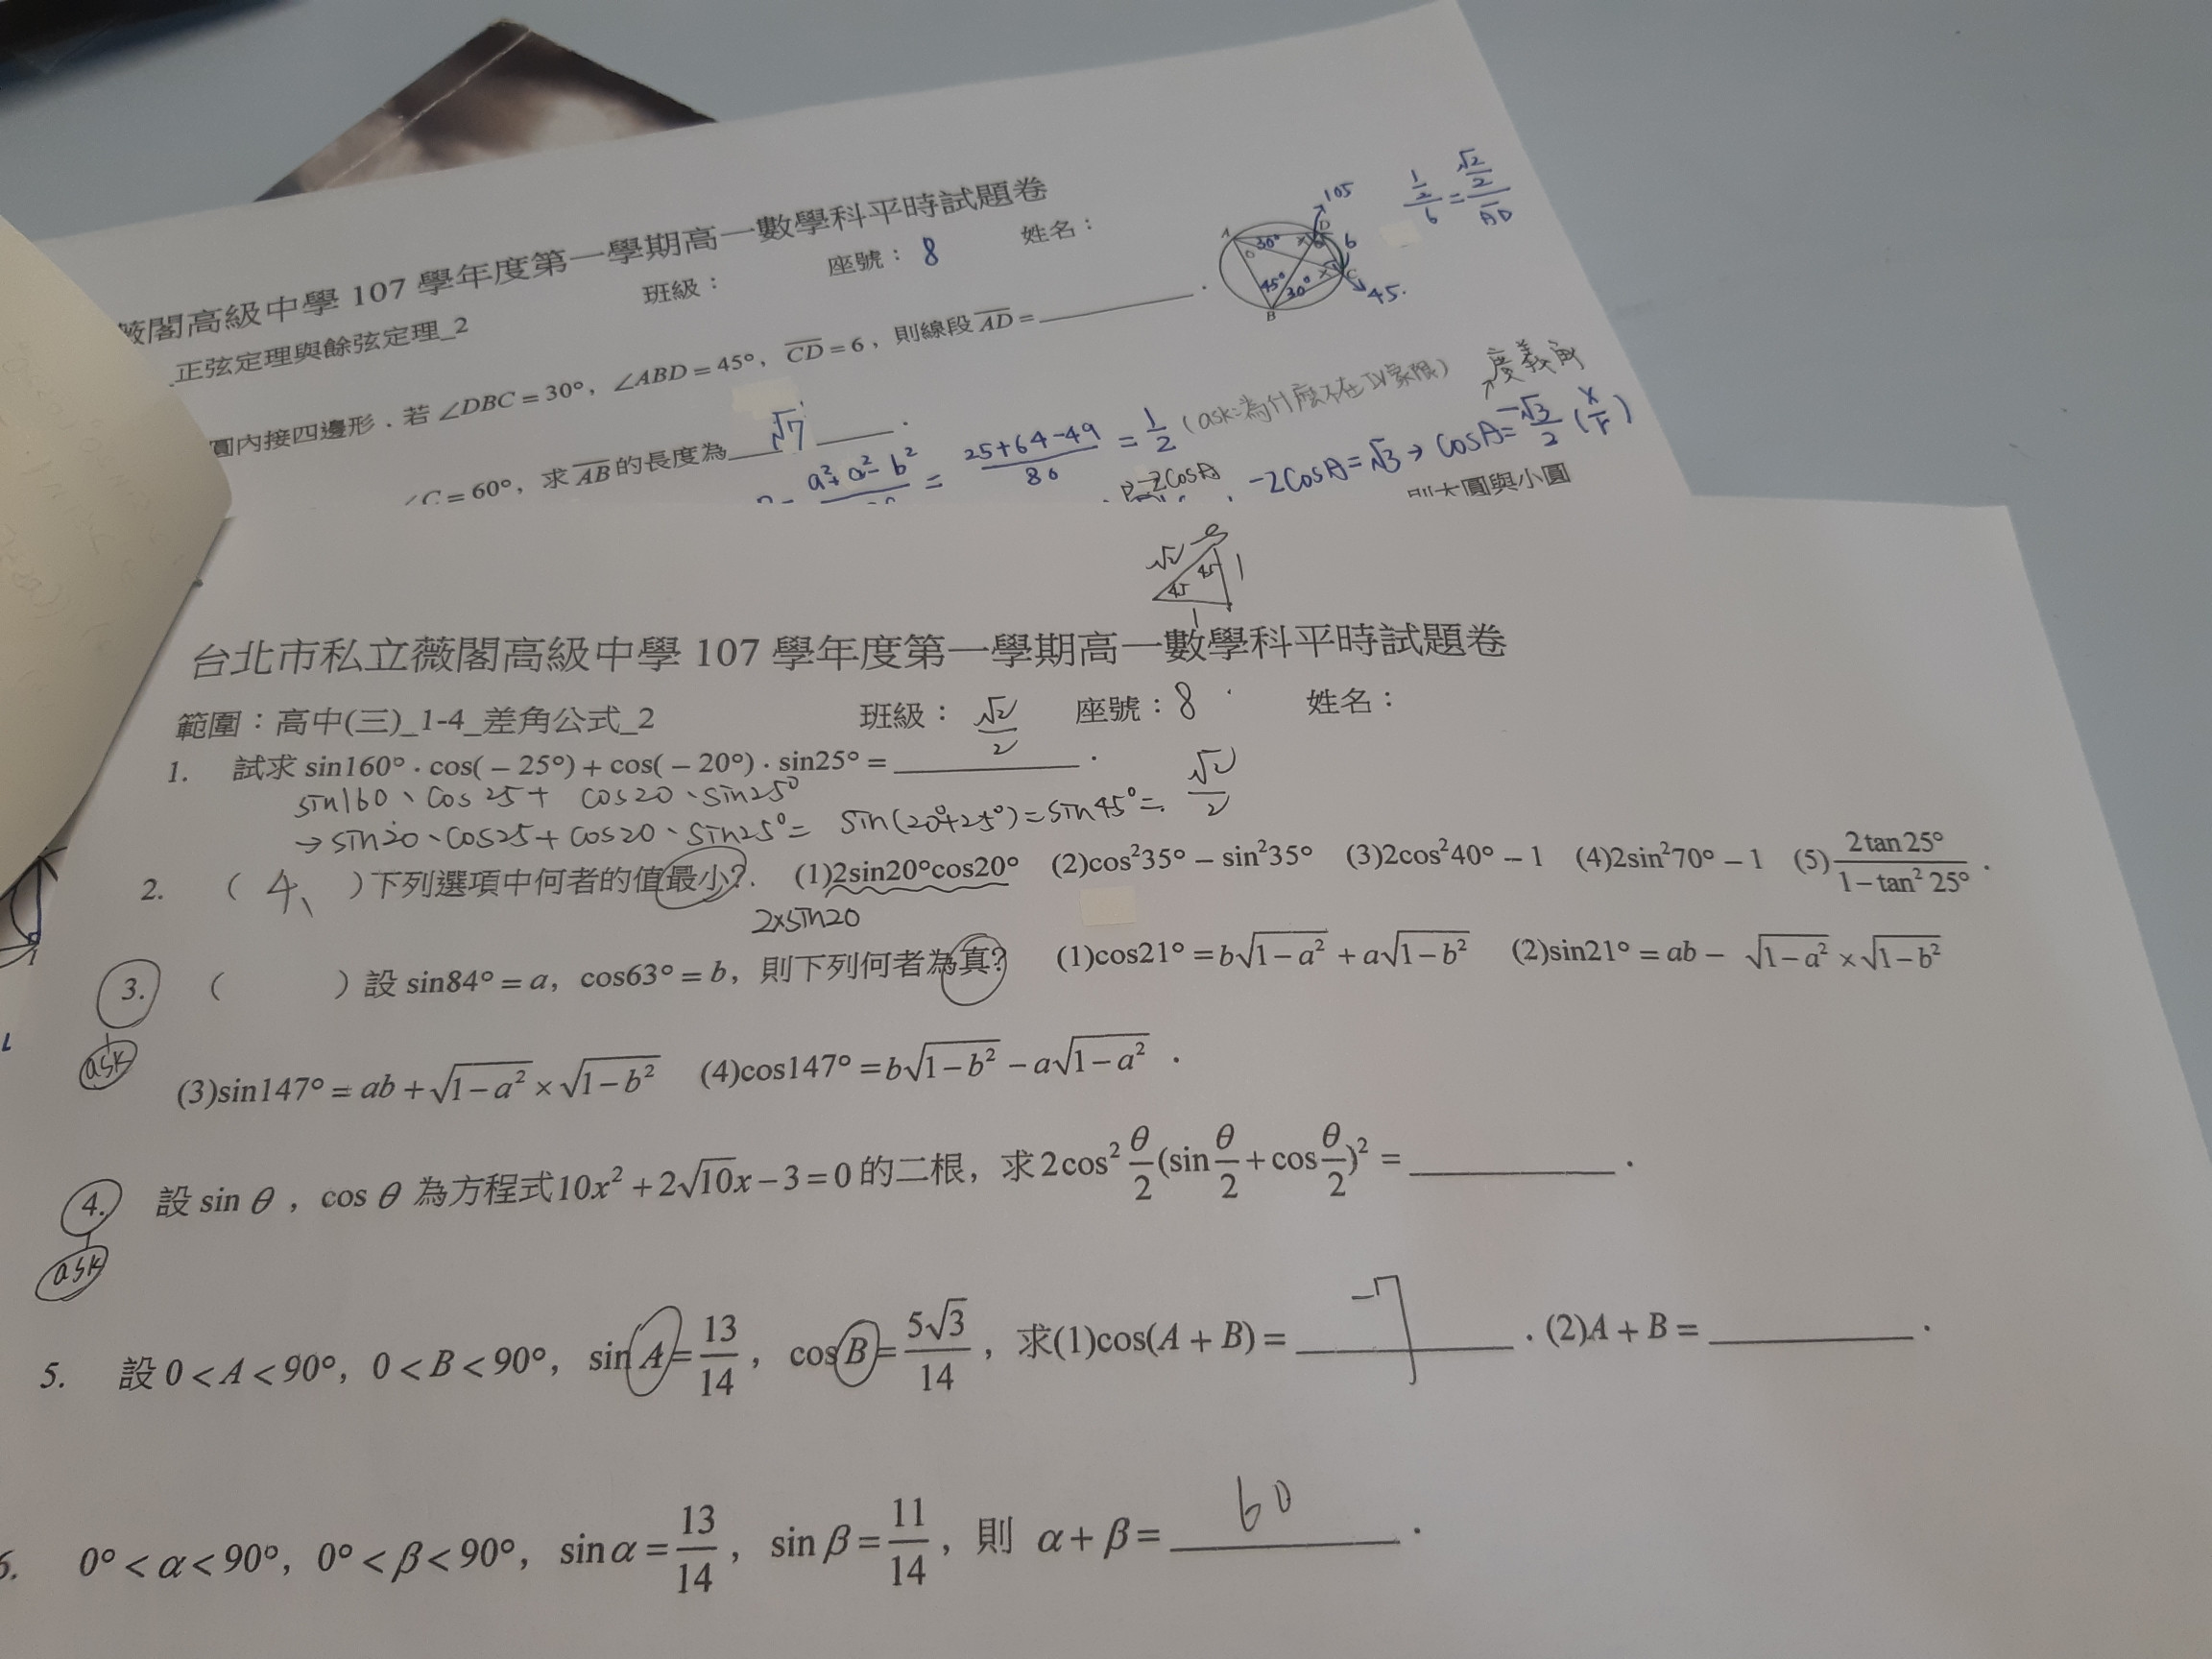 薇閣高級中學 107 學年度第一學期高一數學科平時試題卷
正弦定理與餘弦定理_2
班級：
座號：8
姓名：
圓內接四邊形．若 ∠DBC = 30°，∠ABD = 45°，CD = 6，則線段 AD = ．
A 30° D 105 6 C 45. B 45° 30°
1/2 / 6 = √2/2 / AD
∠C = 60°，求 AB 的長度為 √7 ．
= 25+64-49 / 80 = 1/2 (ask:為什麼不在IV象限)
-2cosA = √3 → cosA = -√3/2 (x/r)
則大圓與小圓
√2 45 45 1 1
台北市私立薇閣高級中學 107 學年度第一學期高一數學科平時試題卷
範圍：高中(三)_1-4_差角公式_2 班級： 座號：8 姓名：
1. 試求 sin160° · cos( − 25°) + cos( − 20°) · sin25° = √2/2 ．
sin160、cos25 + cos20、sin25°
→ sin20、cos25 + cos20、sin25° = sin(20°+25°) = sin45° = √2/2
2. ( 4、 ) 下列選項中何者的值最小？ (1)2sin20°cos20° (2)cos²35° − sin²35° (3)2cos²40° − 1 (4)2sin²70° − 1 (5) 2tan25° / 1 − tan² 25° ．
2×sin20
3. ( ) 設 sin84° = a，cos63° = b，則下列何者為真？ (1)cos21° = b√1−a² + a√1−b² (2)sin21° = ab − √1−a² × √1−b²
ask
(3)sin147° = ab + √1−a² × √1−b² (4)cos147° = b√1−b² − a√1−a² ．
4. 設 sin θ，cos θ 為方程式 10x² + 2√10x − 3 = 0 的二根，求 2cos² θ/2 (sin θ/2 + cos θ/2)² = ．
ask
5. 設 0 < A < 90°，0 < B < 90°，sin A = 13/14，cos B = 5√3/14，求(1)cos(A + B) = -7 ．(2)A + B = ．
6. 0° < α < 90°，0° < β < 90°，sin α = 13/14，sin β = 11/14，則 α + β = 60 ．